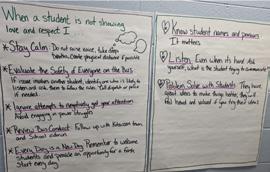 When a student is not showing
love and respect I
* Stay Calm. Do not raise voice, take deep
breaths, Create physical distance if possible
* Evaluate the Safety of Everyone on the Bus
If issue involves another student, identify one who is likely to
listen and ask them to follow the rules. Call dispatch or police
if needed.
* Ignore attempts to negatively get your attention
Avoid engaging in power struggles
* Review Bus Conduct Follow up with Kids
and School admin
* Every Day is a New Day Remember to welcome
students and provide an opportunity for a fresh
Start every day
Know student names and pronouns
It matters
Listen Even when it's hard. Ask
yourself, what is the student trying to communicate
Problem Solve with Students They have
great ideas to make things better, they will
feel heard and valued if you try their ideas